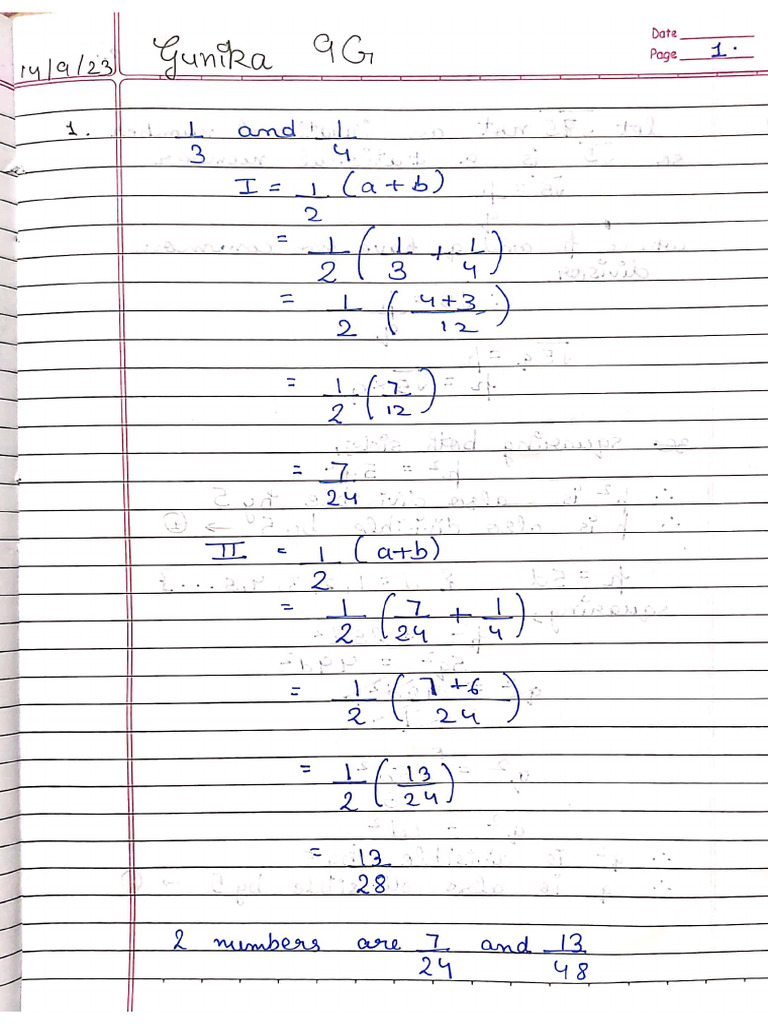 Date
Page 1.
14/9/23 Gunika 9G
1. 1/3 and 1/4
I = 1/2 (a+b)
= 1/2 (1/3 + 1/4)
= 1/2 (4+3/12)
= 1/2 (7/12)
= 7/24
II = 1/2 (a+b)
= 1/2 (7/24 + 1/4)
= 1/2 (7+6/24)
= 1/2 (13/24)
= 13/28
2 numbers are 7/24 and 13/48